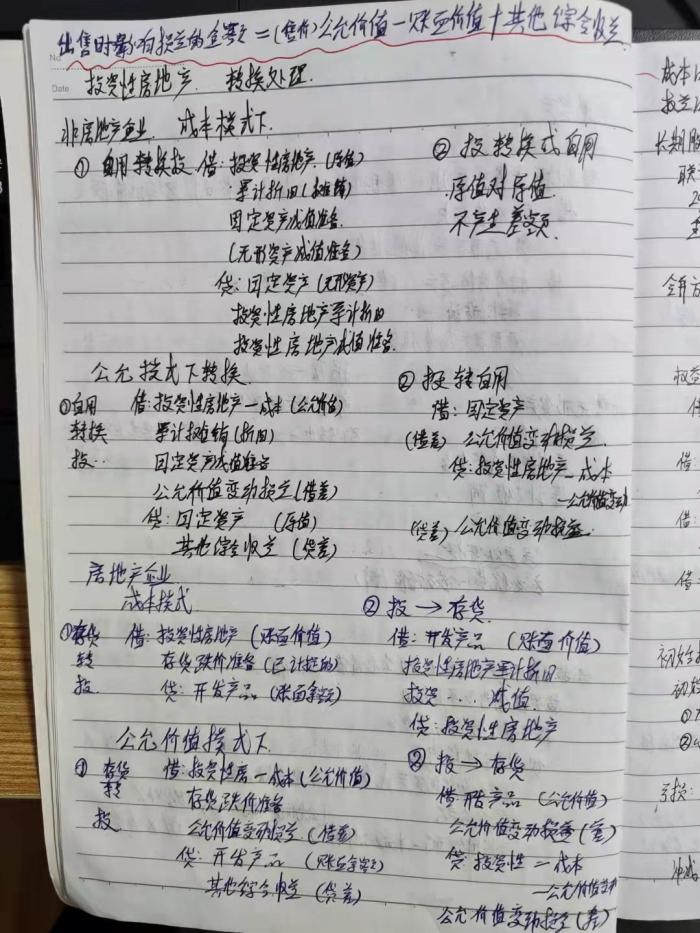 出售时影响损益的金额=(售价)公允价值-账面价值+其他综合收益
No
Date
投资性房地产 转换处理.
非房地产企业 成本模式下.
① 自用转换投 借:投资性房地产(原值)
累计折旧(摊销)
固定资产减值准备
(无形资产减值准备)
贷:固定资产(无形资产)
投资性房地产累计折旧
投资性房地产减值准备.
② 投转换成自用
原值对原值.
不产生差额.
公允模式下转换.
①自用
转换
投..
借:投资性房地产-成本(公允价值)
累计摊销(折旧)
固定资产减值准备
公允价值变动损益(借差)
贷:固定资产 (原值)
其他综合收益(贷差)
② 投转自用
借:固定资产
(借差) 公允价值变动损益.
贷:投资性房地产-成本
-公允价值变动
(贷差) 公允价值变动损益
房地产企业
成本模式
①存货
转
投
借:投资性房地产(账面价值)
存货跌价准备(已计提的)
贷:开发产品(账面余额)
② 投→存货
借:开发产品 (账面价值)
投资性房地产累计折旧
投资...减值.
贷:投资性房地产
公允价值模式下
① 存货
转
投
借:投资性房-成本(公允价值)
存货跌价准备
公允价值变动损益(借差)
贷:开发产品 (账面余额)
其他综合收益(贷差)
② 投→存货
借:开发产品(公允价值)
公允价值变动损益(差)
贷:投资性-成本
-公允价值变动
公允价值变动损益(差)
成本
长期股
联
合并
权益
借
借:
借:
借
初始
初始